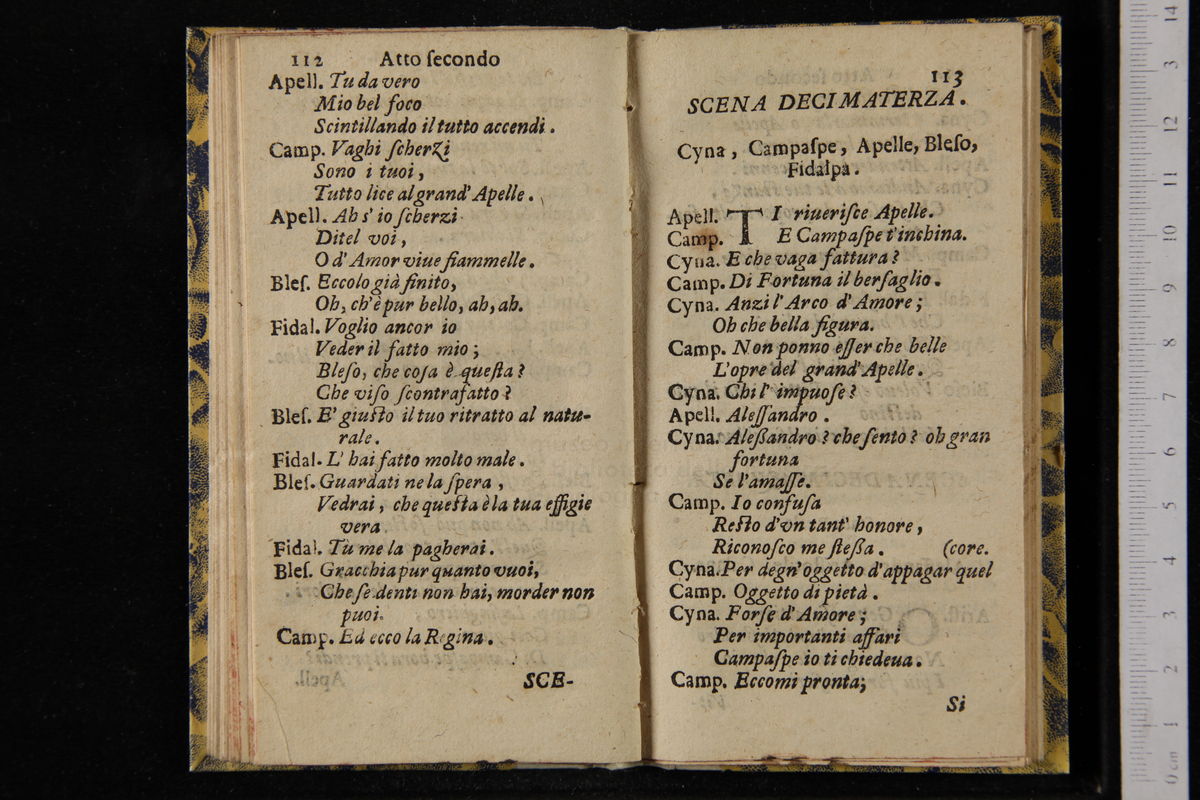 112 Atto ſecondo
Apell. Tu da vero
Mio bel foco
Scintillando il tutto accendi.
Camp. Vaghi ſcherzi
Sono i tuoi,
Tutto lice al grand' Apelle.
Apell. Ah s' io ſcherzi
Ditel voi,
O d' Amor viue fiammelle.
Bleſ. Eccolo già finito,
Oh, ch'è pur bello, ah, ah.
Fidal. Voglio ancor io
Veder il fatto mio;
Bleſo, che coſa è queſta?
Che viſo ſcontrafatto?
Bleſ. E' giuſto il tuo ritratto al natu-
rale.
Fidal. L' hai fatto molto male.
Bleſ. Guardati ne la ſpera,
Vedrai, che queſta è la tua effigie
vera
Fidal. Tù me la pagherai.
Bleſ. Gracchia pur quanto vuoi,
Che ſe denti non hai, morder non
puoi.
Camp. Ed ecco la Regina.
SCE-
113
SCENA DECIMATERZA.
Cyna, Campaſpe, Apelle, Bleſo,
Fidalpa.
Apell. TI riueriſce Apelle.
Camp. E Campaſpe t'inchina.
Cyna. E che vaga fattura?
Camp. Di Fortuna il berſaglio.
Cyna. Anzi l'Arco d'Amore;
Oh che bella figura.
Camp. Non ponno eſſer che belle
L'opre del grand' Apelle.
Cyna. Chi l' impuoſe?
Apell. Aleſſandro.
Cyna. Aleßandro? che ſento? oh gran
fortuna
Se l'amaſſe.
Camp. Io confuſa
Reſto d'vn tant' honore,
Riconoſco me ſteßa. (core.
Cyna. Per degn'oggetto d'appagar quel
Camp. Oggetto di pietà.
Cyna. Forſe d'Amore;
Per importanti affari
Campaſpe io ti chiedeua.
Camp. Eccomi pronta;
Si